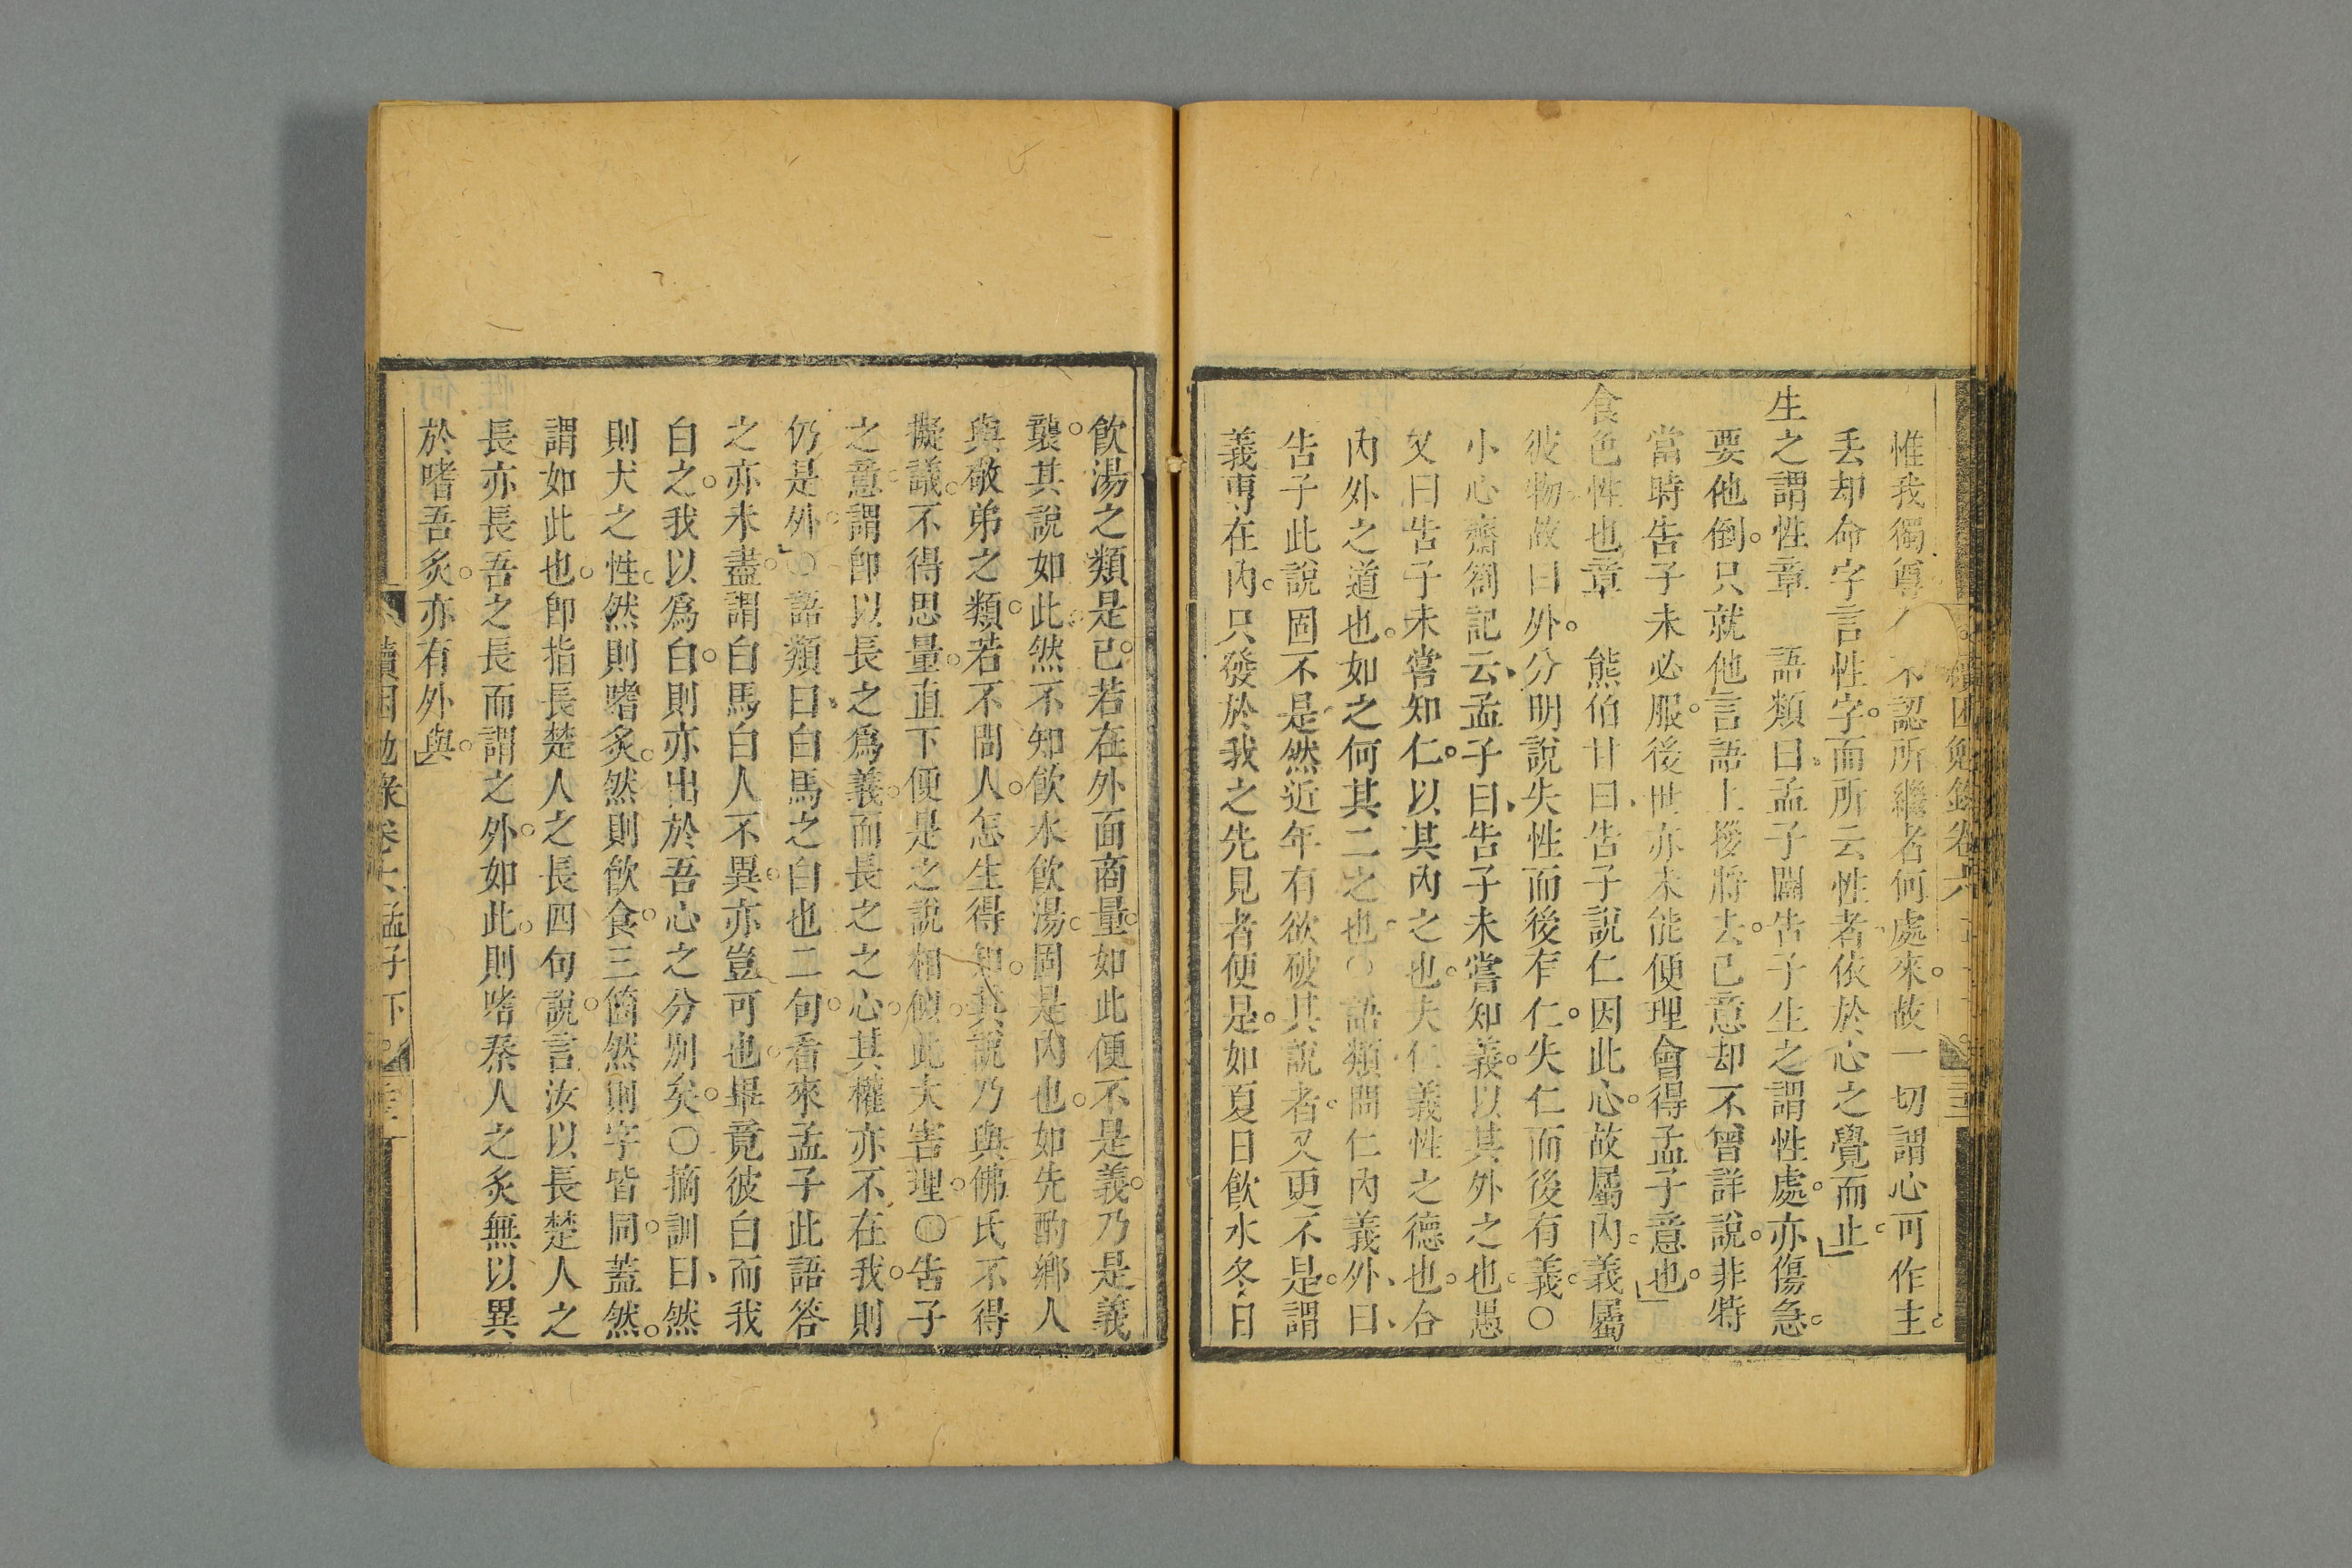 續困勉錄卷六
惟我獨尊不認所繼者何處來故一切謂心可作主
丢却命字言性字而所云性者依於心之覺而止
生之謂性章　語類曰孟子闢告子生之謂性處亦傷急
要他倒只就他言語上撥將去己意却不曾詳說非特
當時告子未必服後世亦未能便理會得孟子意也
食色性也章　熊伯甘曰告子說仁因此心故屬內義屬
彼物故曰外分明說失性而後有仁失仁而後有義〇
小心齋劄記云孟子曰告子未嘗知義以其外之也愚
又曰告子未嘗知仁以其內之也夫仁義性之德也合
內外之道也如之何其二之也〇語類問仁內義外曰
告子此說固不是然近年有欲破其說者又更不是謂
義專在內只發於我之先見者便是如夏日飲水冬日
飲湯之類是已若在外面商量如此便不是義乃是義
襲其說如此然不知飲水飲湯固是內也如先酌鄉人
與敬弟之類若不問人怎生得知其說乃與佛氏不得
擬議不得思量直下便是之說相似此大害理〇告子
之意謂卽以長之爲義而長之之心其權亦不在我則
仍是外〇語類曰白馬之白也二句看來孟子此語答
之亦未盡謂白馬白人不異亦豈可也畢竟彼白而我
白之我以爲白則亦出於吾心之分別矣〇摘訓曰然
則犬之性然則嗜炙然則飲食三箇然則字皆同蓋然
謂如此也卽指長楚人之長四句說言汝以長楚人之
長亦長吾之長而謂之外如此則嗜秦人之炙無以異
於嗜吾炙亦有外與
續困勉錄卷六孟子下